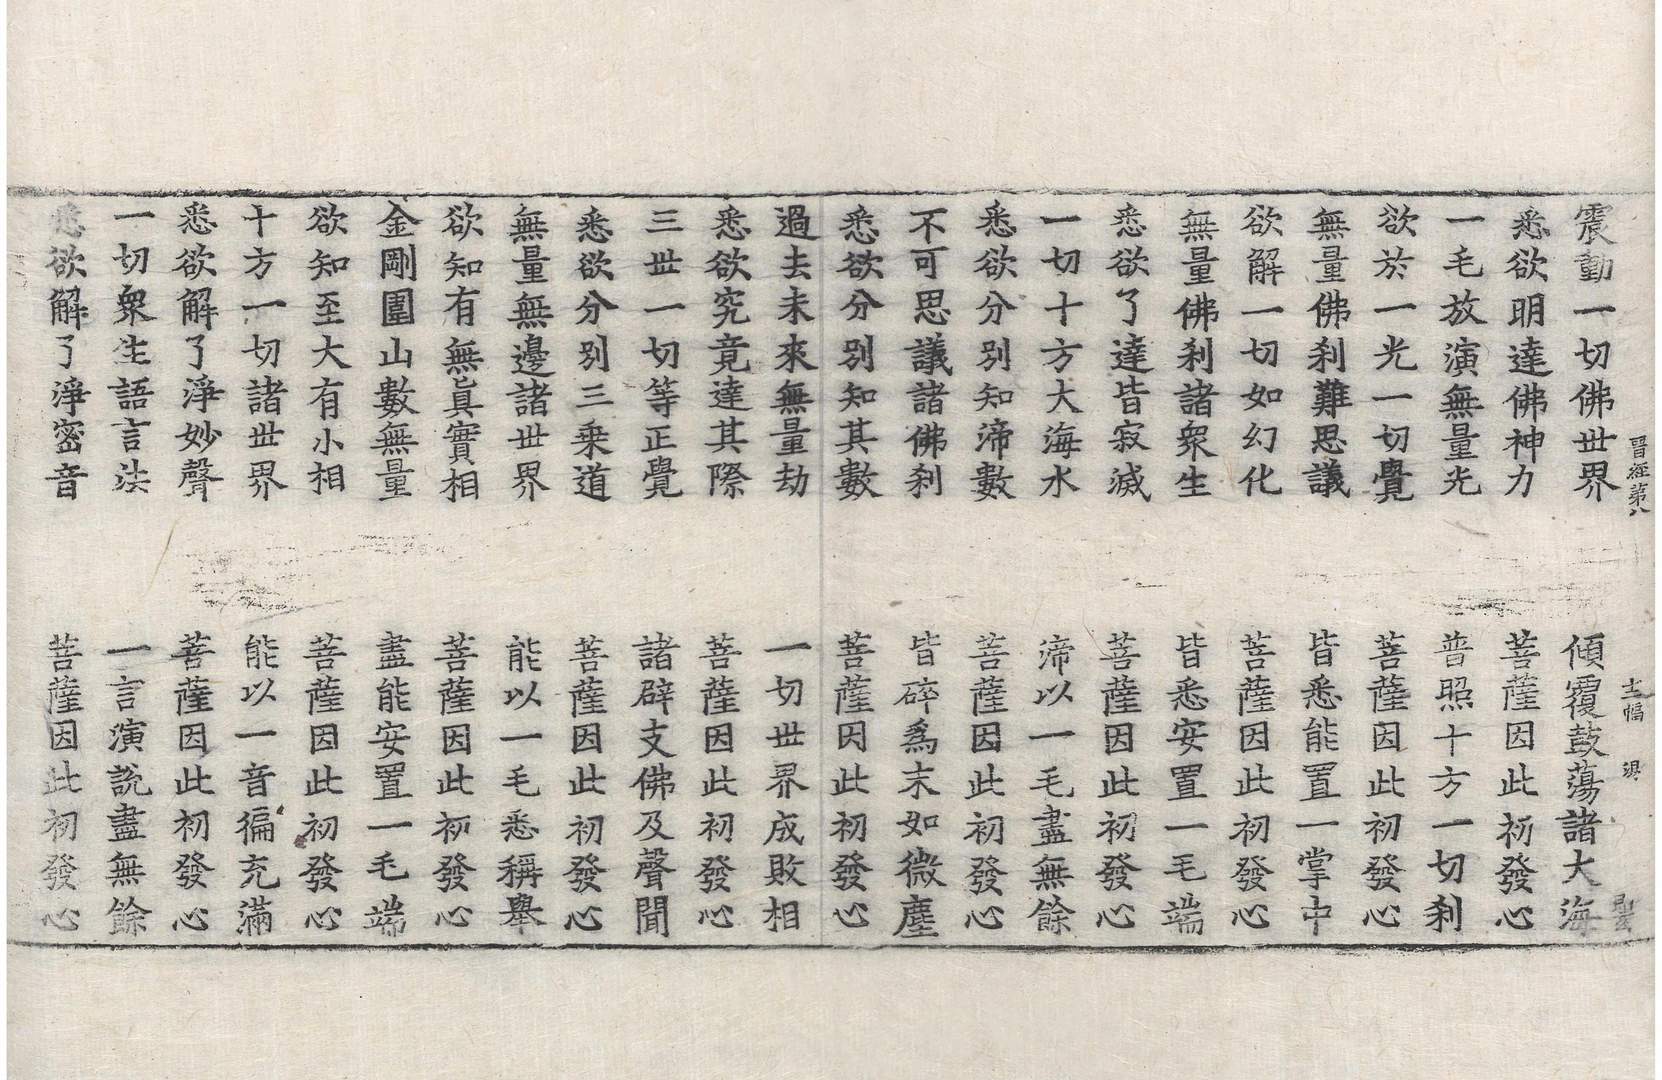 晉經第八
震動一切佛世界　傾覆鼓蕩諸大海
悉欲明達佛神力　菩薩因此初發心
一毛放演無量光　普照十方一切刹
欲於一光一切覺　菩薩因此初發心
無量佛刹難思議　皆悉能置一掌中
欲解一切如幻化　菩薩因此初發心
無量佛刹諸衆生　皆悉安置一毛端
悉欲了達皆寂滅　菩薩因此初發心
一切十方大海水　渧以一毛盡無餘
悉欲分別知渧數　菩薩因此初發心
不可思議諸佛刹　皆碎爲末如微塵
悉欲分別知其數　菩薩因此初發心
過去未來無量劫　一切世界成敗相
悉欲究竟達其際　菩薩因此初發心
三世一切等正覺　諸辟支佛及聲聞
悉欲分別三乗道　菩薩因此初發心
無量無邊諸世界　能以一毛悉稱舉
欲知有無眞實相　菩薩因此初發心
金剛圍山數無量　盡能安置一毛端
欲知至大有小相　菩薩因此初發心
十方一切諸世界　能以一音徧充滿
悉欲解了淨妙聲　菩薩因此初發心
一切衆生語言法　一言演說盡無餘
悉欲解了淨密音　菩薩因此初發心